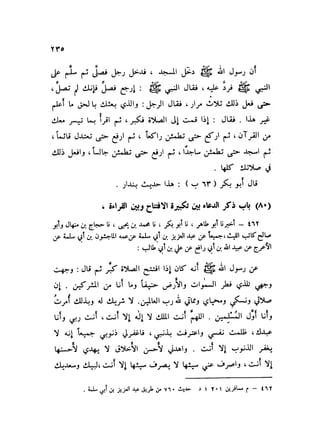 ٢٣٥
أن رسول الله ﷺ دخل المسجد ، فدخل رجل فصلى ثم سلم على
النبي ﷺ ، فرد عليه ، فقال النبي ﷺ : ارجع فصل فإنك لم تصل ،
حتى فعل ذلك ثلاث مرار ، فقال الرجل : والذي بعثك بالحق ما أعلم
غير هذا . فقال : إذا قمت إلى الصلاة فكبر ، ثم اقرأ بما تيسر معك
من القرآن ، ثم اركع حتى تطمئن راكعا ، ثم ارفع حتى تعتدل قائما ،
ثم اسجد حتى تطمئن جالسا ، ثم ارفع حتى تطمئن جالسا ، وافعل ذلك
في صلاتك كلها
قال أبو بكر ( ب ٦٣ ) : هذا حديث جليل .
(٨٥) باب ذكر الدعاء بين تكبيرة الافتتاح وبين القراءة .
٤٦٢ ـ أخبرنا أبو طاهر ، نا أبو بكر ، نا محمد بن يحيى ، نا حجاج بن منهال وأبو
صالح كاتب الليث ، جميعا عن عبد العزيز بن أبي سلمة عن الماجشون بن أبي سلمة عن
الأعرج عن عبيد الله بن أبي رافع عن علي بن أبي طالب :
عن رسول الله ﷺ أنه كان إذا افتتح الصلاة كبر ثم قال : وجهت
وجهي للذي فطر السموات والأرض حنيفا وما أنا من المشركين . إن
صلاتي ونسكي ومحياي ومماتي لله رب العالمين . لا شريك له وبذلك أمرت
وأنا أول المسلمين . اللهم أنت الملك لا إله إلا أنت ، أنت ربي وأنا
عبدك ، ظلمت نفسي واعترفت بذنبي ، فاغفر لي ذنوبي جميعا إنه لا
يغفر الذنوب إلا أنت . واهدني لأحسن الأخلاق ، لا يهدي لأحسنها
إلا أنت ، واصرف عني سيئها لا يصرف سيئها إلا أنت ، لبيك وسعديك
٤٦٢ ـ م مسافرين ٢٠١ ؛ د حديث ٧٦٠ من طريق عبد العزيز بن أبي سلمة .